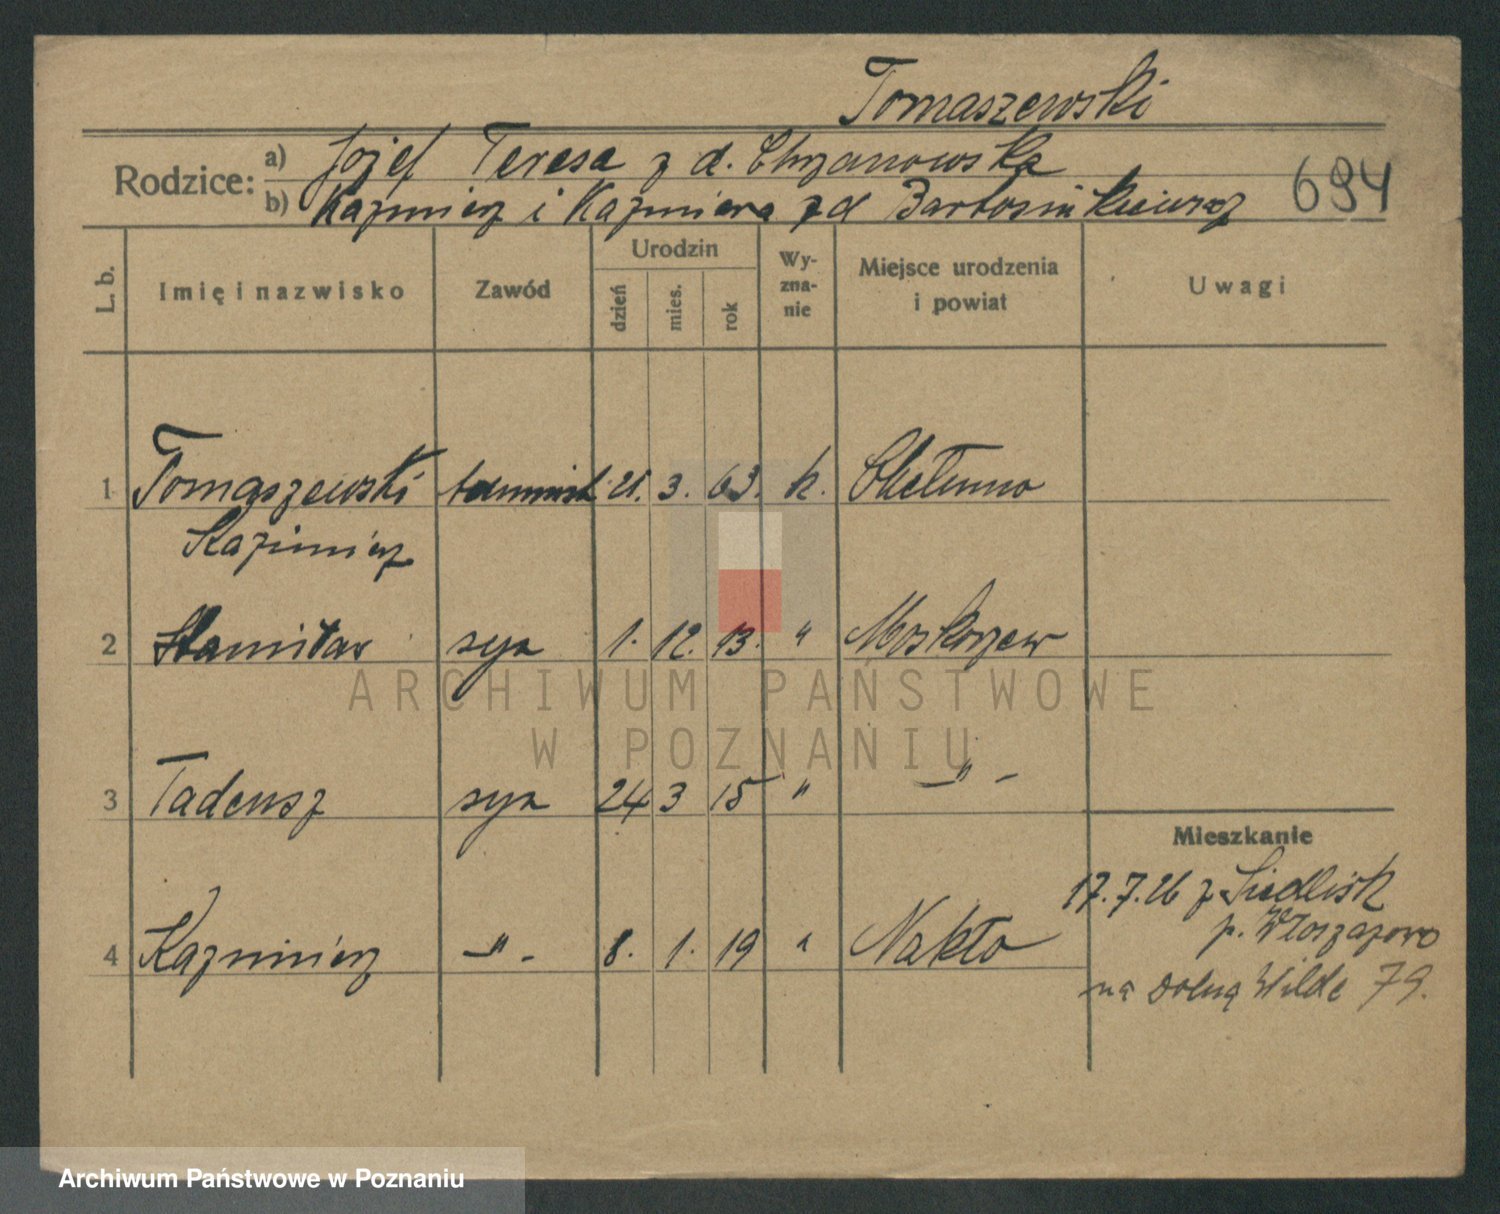 Tomaszewski
Rodzice: a) Józef Teresa z d. Chrzanowska
b) Kazimierz i Kazimiera z d Bartosinkiewicz
694
L. b. Imię i nazwisko Zawód Urodzin dzień mies. rok Wy-zna-nie Miejsce urodzenia i powiat Uwagi
1 Tomaszewski 21. 3. 63. k. Chełmno
Kazimierz
2 Stanisław syn 1. 12. 13. " Moskorzew
3 Tadeusz syn 24 3 15 " — " —
Mieszkanie
17.7.26 z Siedlisk
p.
4 Kazimierz — " — 8. 1. 19 " Nakło
na Dolną Wildę 79.
ARCHIWUM PAŃSTWOWE
W POZNANIU
Archiwum Państwowe w Poznaniu